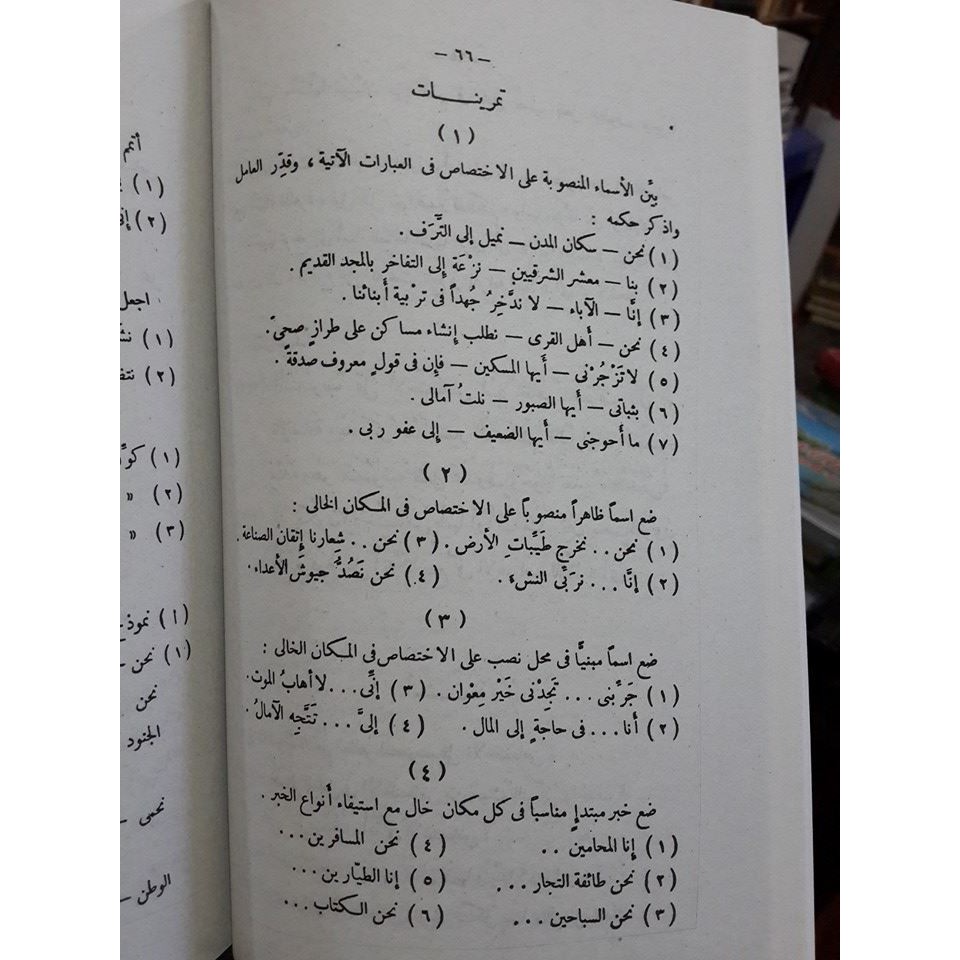 — ٦٦ —
تمرينــــات
(١)
بيِّن الأسماء المنصوبة على الاختصاص فى العبارات الآتية، وقدِّر العامل
واذكر حكمه :
(١) نحن — سكان المدن — نميل إلى التَّرَف .
(٢) بنا — معشر الشرقيين — نزْعَة إِلى التفاخر بالمجد القديم .
(٣) إنَّا — الآباء — لا ندَّخِرُ جُهداً فى ترْبية أَبنائنا .
(٤) نحن — أَهل القرى — نطلب إِنشاء مساكن على طرازٍ صحىّ .
(٥) لا تَزْجُرْنى — أَيها المسكين — فإِن فى قولٍ معروف صدقةً .
(٦) بثباتى — أَيها الصبور — نلتُ آمالى .
(٧) ما أَحوجنى — أَيها الضعيف — إِلى عفو ربى .
(٢)
ضع اسماً ظاهراً منصوباً على الاختصاص فى المكان الخالى :
(١) نحن .. نخرج طَيِّباتِ الأرض . (٣) نحن .. شِعارنا إِتقان الصناعة .
(٢) إنَّا ... نربِّى النشء . (٤) نحن نَصُدُّ جيوشَ الأعداء .
(٣)
ضع اسماً مبنيًّا فى محل نصب على الاختصاص فى المكان الخالى :
(١) جَرِّبنى ... تَجِدْنى خَيْر مِعْوان . (٣) إنِّى ... لا أهابُ الموت .
(٢) أَنا ... فى حاجةٍ إلى المال . (٤) إلىَّ ... تَتَّجِه الآمالُ .
(٤)
ضع خبر مبتدإٍ مناسباً فى كل مكان خال مع استيفاء أَنواع الخبر .
(١) إنا المحامين .. (٤) نحن المسافرين ...
(٢) نحن طائفة التجار ... (٥) إنا الطيّارين ...
(٣) نحن السباحين ... (٦) نحن الكتاب ...
أتم
(١)
(٢)
اجعل
(١)
(٢)
(١)
(٢) »
(٣) »
(١) نحن —
نحن
الجنود
نحمى —
الوطن —